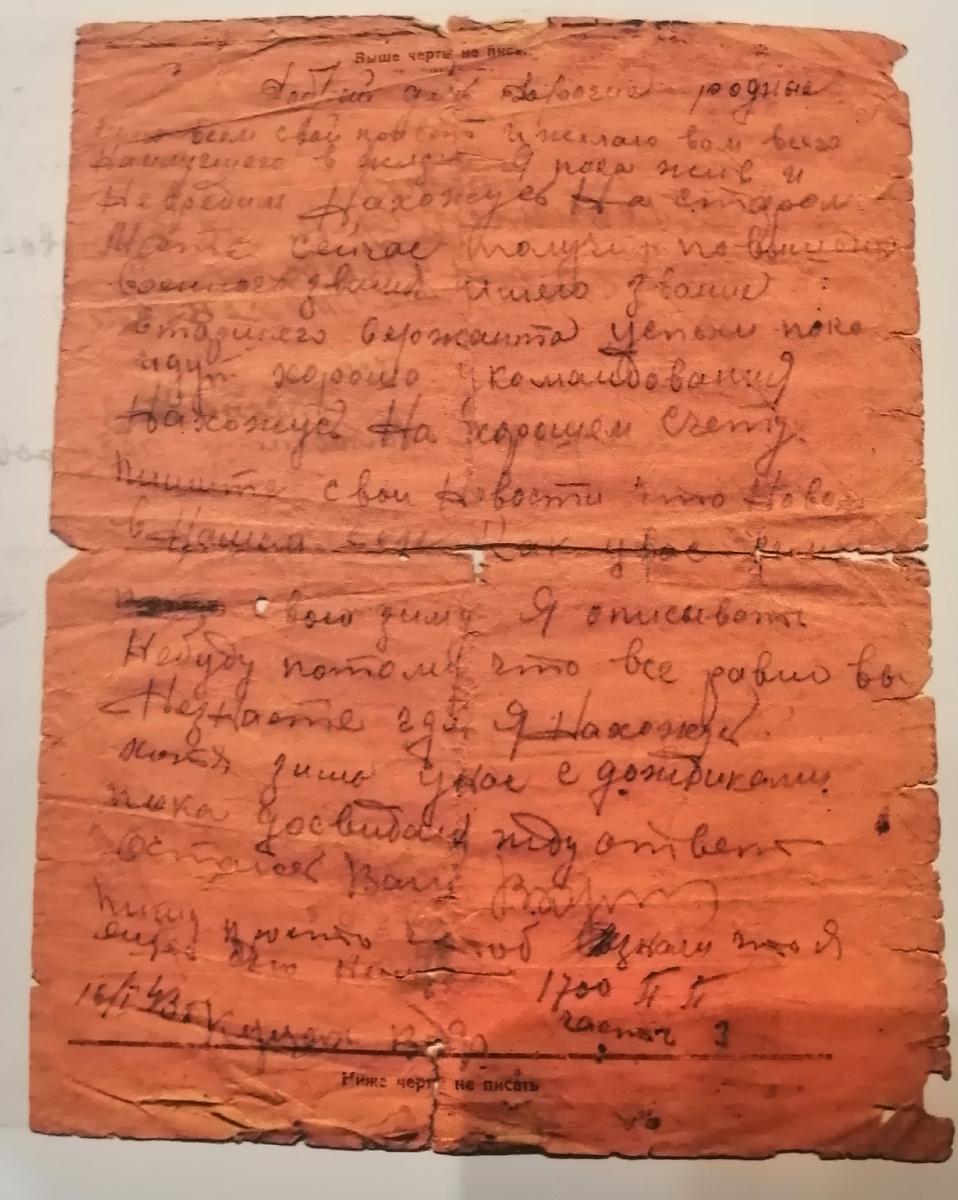 Выше черты не писа
Добрый день Дорогие родные
всем свой привет и желаю вам всего
Наилучшего в жизни Я пока жив и
Невредим Нахожусь На старом
Месте сейчас получил повышение
военного звания имею звание
старшего сержанта успехи пока
идут хорошо укомандования
Нахожусь На хорошем Счету.
Пишите свои Новости что Ново
в Нашем селе Как увас зима
свою зиму Я описывать
Небуду потому что все равно вы
Незнаете где Я Нахожусь
хотя зима унас с дождиками
пока досвидания жду ответ
Остаюсь Ваш
Пишу просто чтоб знали что Я
16/I 43
1700 П П
часть 3
Ниже черты не писать